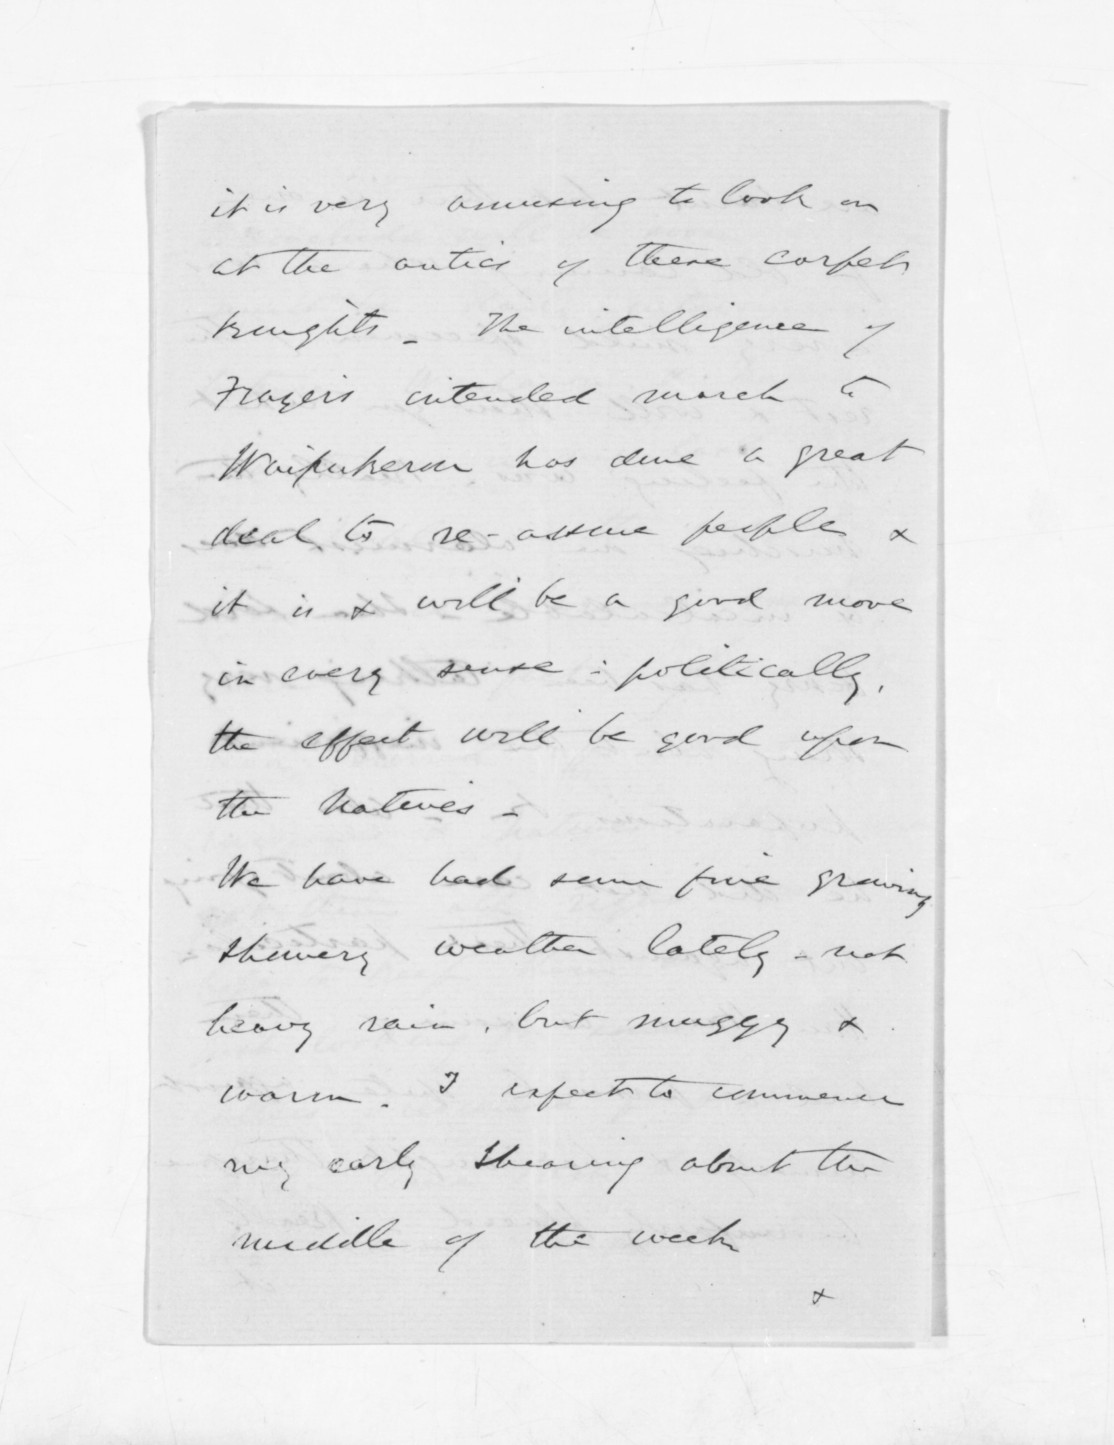 it is very amusing to look on
at the antics of these carpet
knights _ The intelligence of
Frazer's intended march to
Waipukerau has done a great
deal to re-assure people &
it is & will be a good move
in every sense : politically,
the effect will be good upon
the Natives -
We have had some fine growing
showery weather lately - not
heavy rain, but muggy &
warm. I expect to commence
my early shearing about the
middle of the week
&